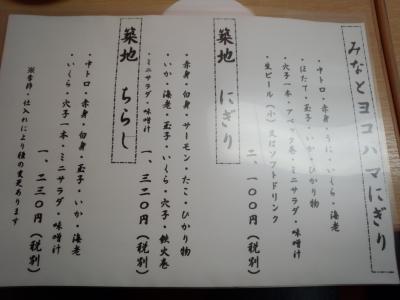 みなとヨコハマにぎり
・中トロ・赤身・うに・いくら・海老
・ほたて・玉子・いか・ひかり物
・穴子一本・アベック巻・ミニサラダ・味噌汁
・生ビール(小)又はソフトドリンク
二、一〇〇円(税別)
築地 にぎり
・赤身・白身・サーモン・たこ・ひかり物
・いか・海老・玉子・いくら・穴子・鉄火巻
・ミニサラダ・味噌汁
一、三二〇円(税別)
築地 ちらし
・中トロ・赤身・白身・玉子・いか・海老
・いくら・穴子一本・ミニサラダ・味噌汁
一、二三〇円(税別)
※季節・仕入れにより種の変更あります